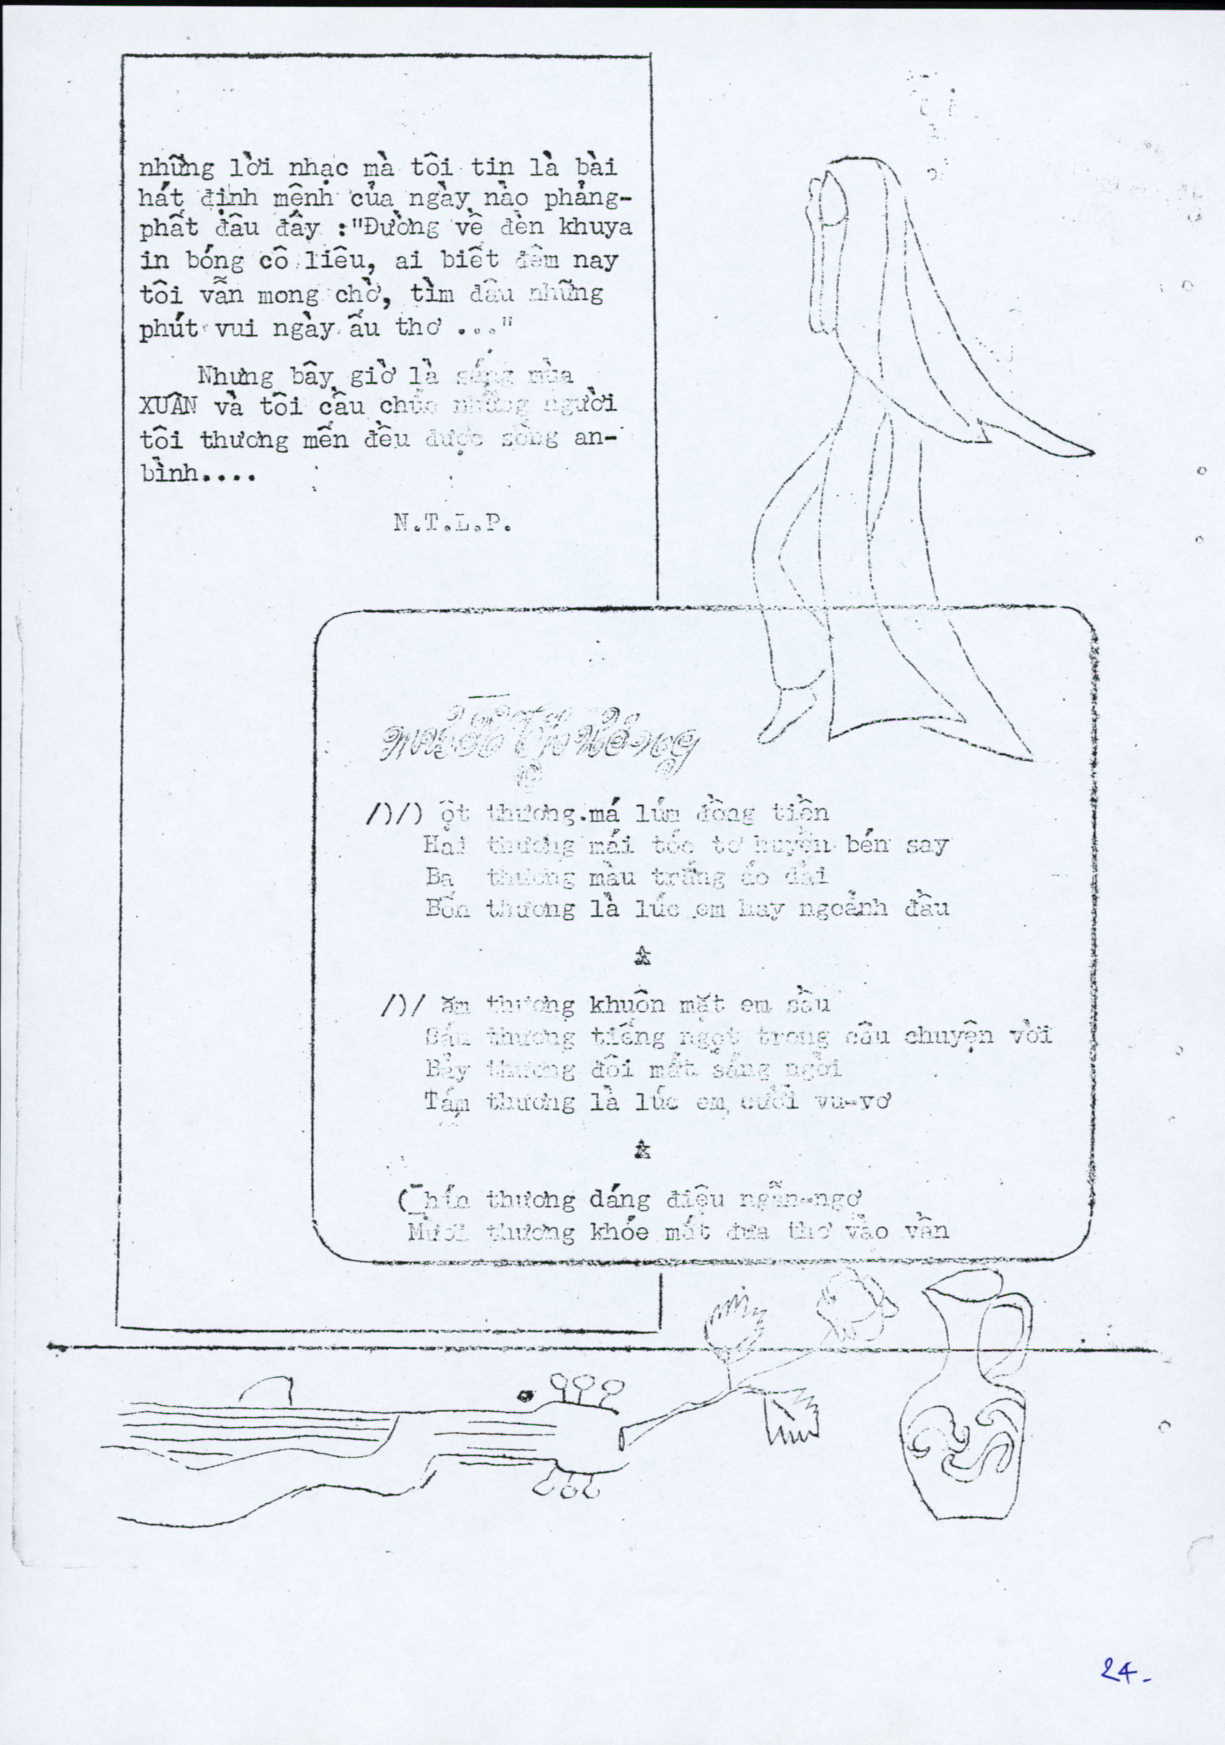 những lời nhạc mà tôi tin là bài
hát định mệnh của ngày nào phảng-
phất đâu đây :"Đường về đèn khuya
in bóng cô liêu, ai biết đêm nay
tôi vẫn mong chờ, tìm đâu những
phút vui ngày ấu thơ ..."
Nhưng bây giờ là sáng mùa
XUÂN và tôi cầu chúc những người
tôi thương mến đều được sống an-
bình....
N.T.L.P.
Mười Thương
Một thương má lúm đồng tiền
Hai thương mái tóc tơ huyền bén say
Ba thương màu trắng áo dài
Bốn thương là lúc em hay ngoảnh đầu
Năm thương khuôn mặt em sầu
Sáu thương tiếng ngọt trong câu chuyện vời
Bảy thương đôi mắt sáng ngời
Tám thương là lúc em cười vu-vơ
Chín thương dáng điệu ngẩn-ngơ
Mười thương khóe mắt đưa thơ vào vần
24-